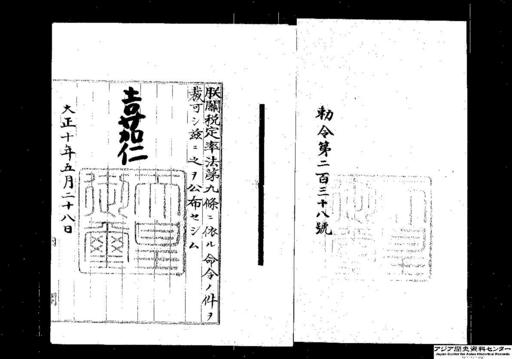 勅令第二百三十八號
朕關税定率法第九條ニ依ル命令ノ件ヲ
裁可シ茲ニ之ヲ公布セシム
嘉仁
大正十年五月二十八日
アジア歴史資料センター
Japan Center for Asian Historical Records